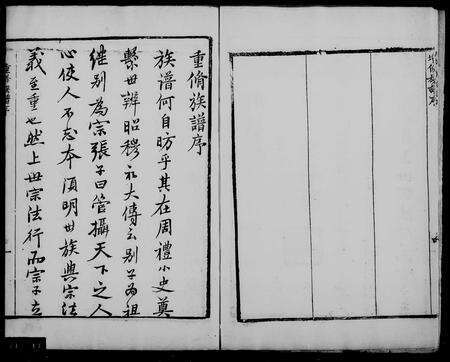 重脩族譜序
族譜何自昉乎其在周禮小史奠
繫世辨昭穆礼大傳云别子为祖
继别為宗張子曰管攝天下之人
心使人不忘本須明世族與宗法
義至重也然上世宗法行而宗子立